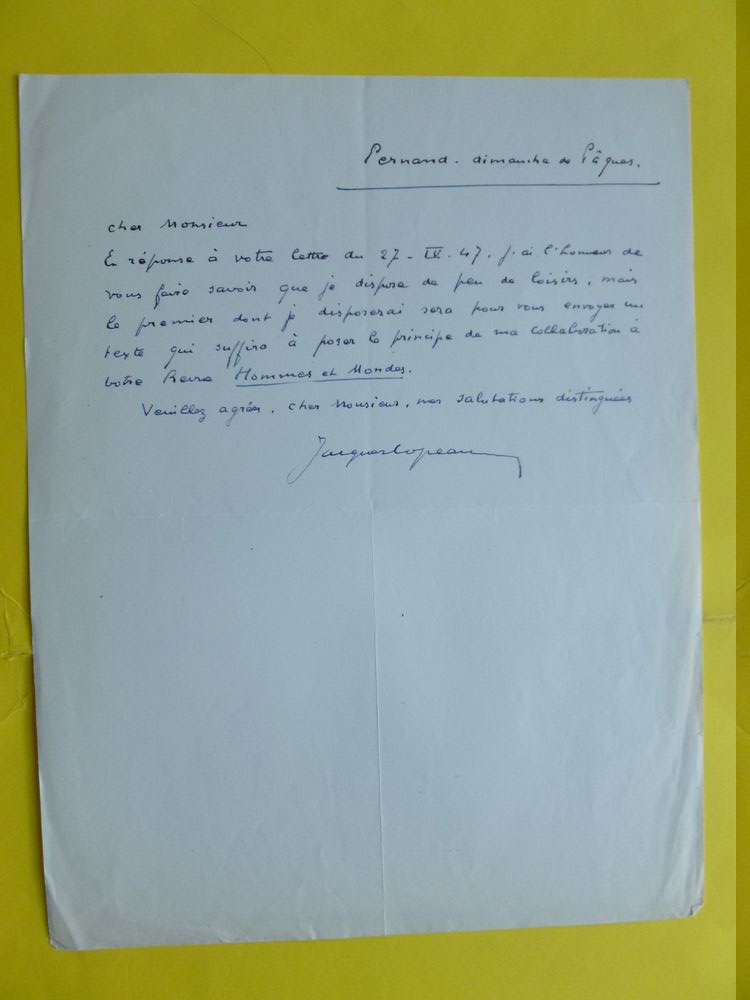 Pernand. dimanche de Pâques.
cher Monsieur
E réponse à votre lettre du 27 - IX. 47, j'ai l'honneur de
vous faire savoir que je dispose de peu de loisirs, mais
le premier dont je disposerai sera pour vous envoyer un
texte qui suffira à poser le principe de ma collaboration à
votre Revue Hommes et Mondes.
Veuillez agréer, cher Monsieur, mes salutations distinguées
Jacques Copeau